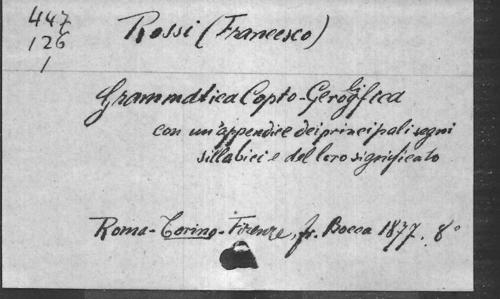 447
126
1
Rossi (Francesco)
Grammatica Copto-Geroglifica
con un'appendice dei principali segni
sillabici e del loro significato
Roma-Torino-Firenze, fr. Bocca 1877. 8°